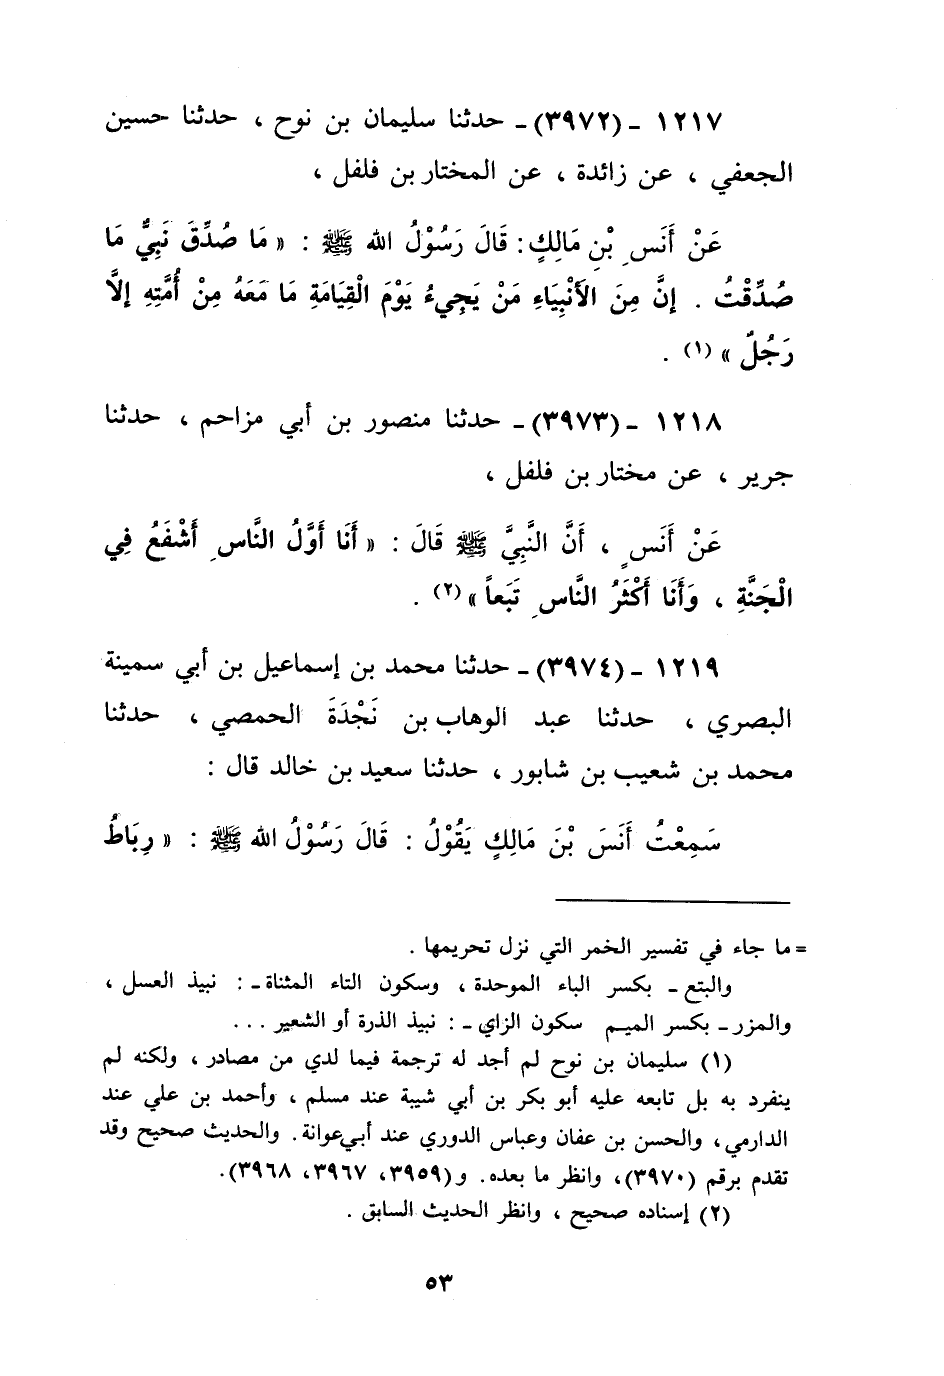 ١٢١٧ - (٣٩٧٢) - حدثنا سليمان بن نوح ، حدثنا حسين
الجعفي ، عن زائدة ، عن المختار بن فلفل ،
عَنْ أَنَسِ بْنِ مَالِكٍ : قَالَ رَسُوْلُ الله ﷺ : « مَا صُدِّقَ نَبِيٌّ مَا
صُدِّقْتُ . إِنَّ مِنَ الأَنْبِيَاءِ مَنْ يَجِيءُ يَوْمَ الْقِيَامَةِ مَا مَعَهُ مِنْ أُمَّتِهِ إِلاَّ
رَجُلٌ » (١) .
١٢١٨ - (٣٩٧٣) - حدثنا منصور بن أبي مزاحم ، حدثنا
جرير ، عن مختار بن فلفل ،
عَنْ أَنَسٍ ، أَنَّ النَّبِيَّ ﷺ قَالَ : « أَنَا أَوَّلُ النَّاسِ أَشْفَعُ فِي
الْجَنَّةِ ، وَأَنَا أَكْثَرُ النَّاسِ تَبَعاً » (٢) .
١٢١٩ - (٣٩٧٤) - حدثنا محمد بن إسماعيل بن أبي سمينة
البصري ، حدثنا عبد الوهاب بن نَجْدَةَ الحمصي ، حدثنا
محمد بن شعيب بن شابور ، حدثنا سعيد بن خالد قال :
سَمِعْتُ أَنَسَ بْنَ مَالِكٍ يَقُوْلُ : قَالَ رَسُوْلُ الله ﷺ : « رِبَاطُ
= ما جاء في تفسير الخمر التي نزل تحريمها .
والبتع - بكسر الباء الموحدة ، وسكون التاء المثناة - : نبيذ العسل ،
والمزر - بكسر الميم سكون الزاي - : نبيذ الذرة أو الشعير ...
(١) سليمان بن نوح لم أجد له ترجمة فيما لدي من مصادر ، ولكنه لم
ينفرد به بل تابعه عليه أبو بكر بن أبي شيبة عند مسلم ، وأحمد بن علي عند
الدارمي ، والحسن بن عفان وعباس الدوري عند أبي عوانة . والحديث صحيح وقد
تقدم برقم (٣٩٧٠)، وانظر ما بعده. و(٣٩٥٩، ٣٩٦٧، ٣٩٦٨).
(٢) إسناده صحيح ، وانظر الحديث السابق .
٥٣